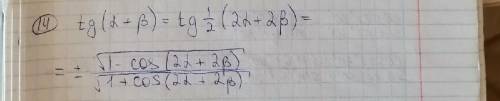 14 tg(α+β) = tg ½ (2α+2β) =
= ± √(1 - cos(2α+2β)) / √(1 + cos(2α+2β))